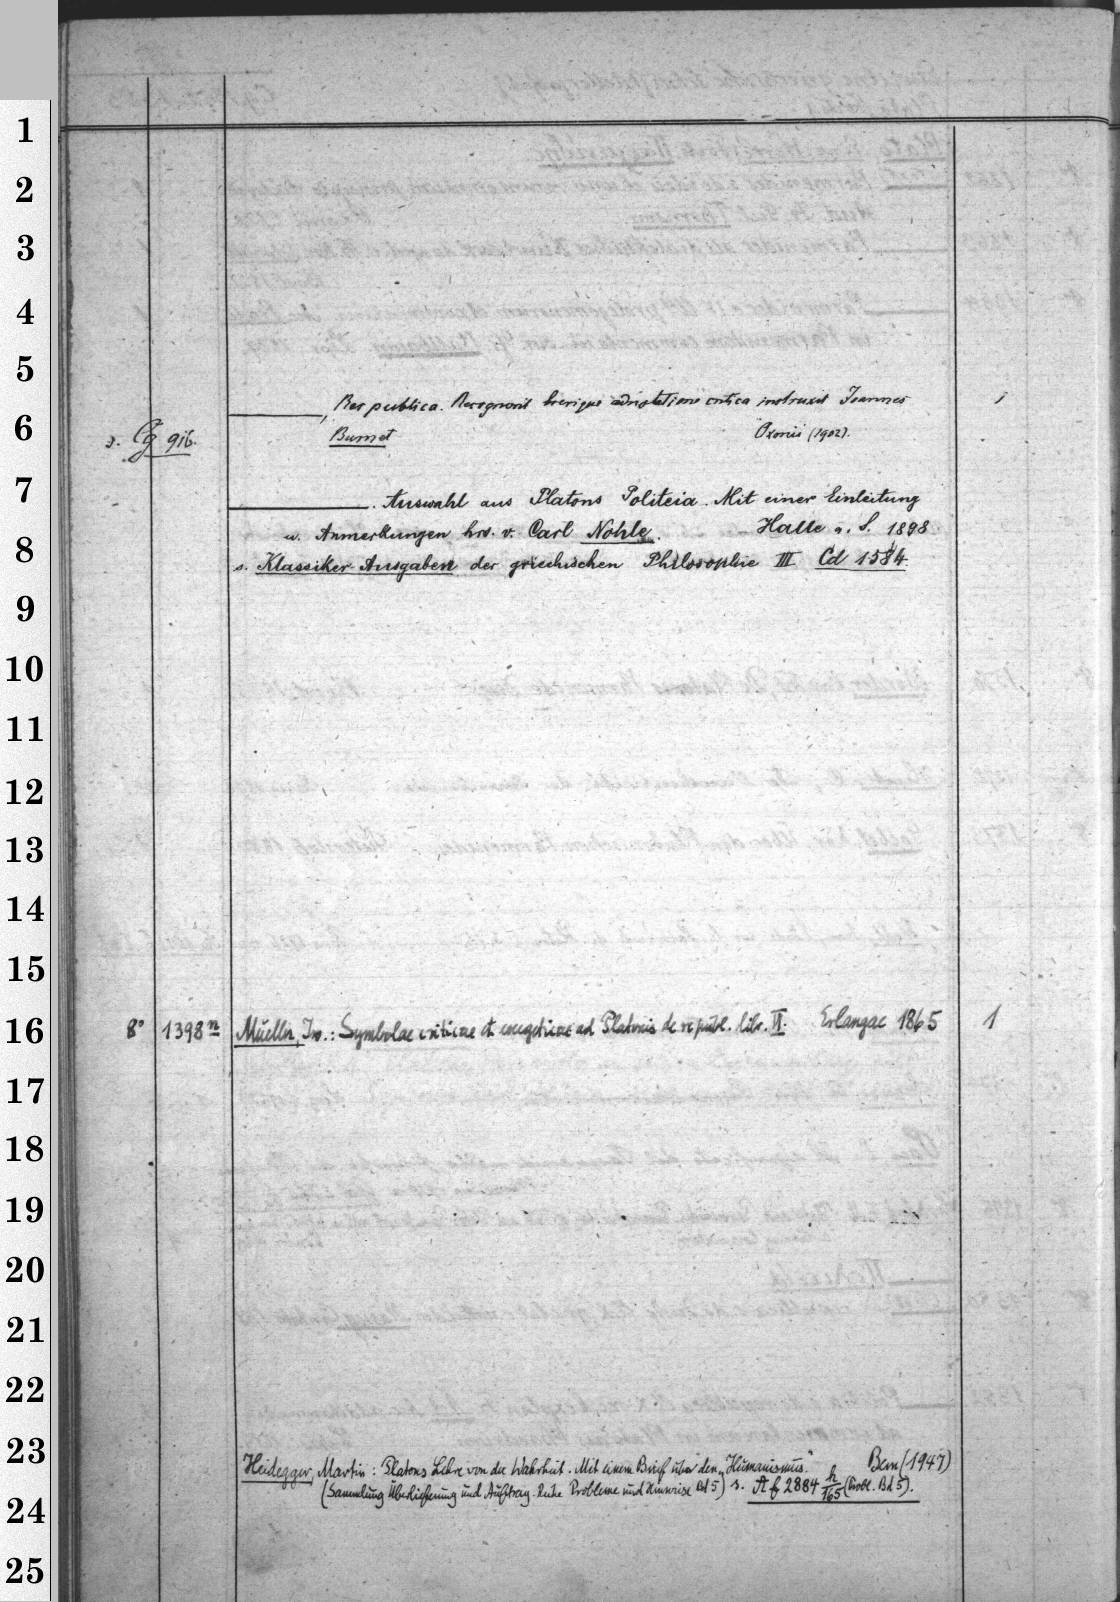 1
2
3
4
5
______, Res publica. Recognovit brevique adnotatione critica instruxit Joannes 1
6
s. Cg 916. Burnet Oxonii (1902).
7
______. Auswahl aus Platons Politeia. Mit einer Einleitung
u. Anmerkungen hrs. v. Carl Nohle. Halle a. S. 1898
8
s. Klassiker-Ausgaben der griechischen Philosophie III Cd 1584.
9
10
11
12
13
14
15
16
8° 1398ⁿ Mueller, Iw.: Symbolae criticae et exegeticae ad Platonis de republ. libr. VI. Erlangae 1865 1
17
18
19
20
21
22
23
Heidegger, Martin: Platons Lehre von der Wahrheit. Mit einem Brief über den „Humanismus." Bern (1947)
(Sammlung Überlieferung und Auftrag. Reihe Probleme und Hinweise Bd 5) s. Af 2884 h/165 (Probl. Bd 5).
24
25